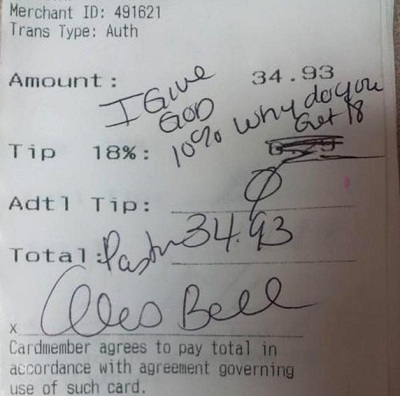 Merchant ID: 491621
Trans Type: Auth
Amount: 34.93
I Give
GOD
10% why do you
Get 18
Tip 18%: 6.29
Adtl Tip: Ø
Total: Pastor 34.93
x Bell
Cardmember agrees to pay total in
accordance with agreement governing
use of such card.